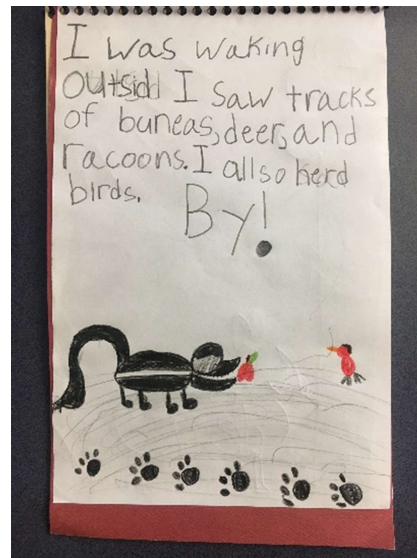 I was waking
outsid I saw tracks
of buneas, deer, and
racoons. I allso herd
birds.
By!